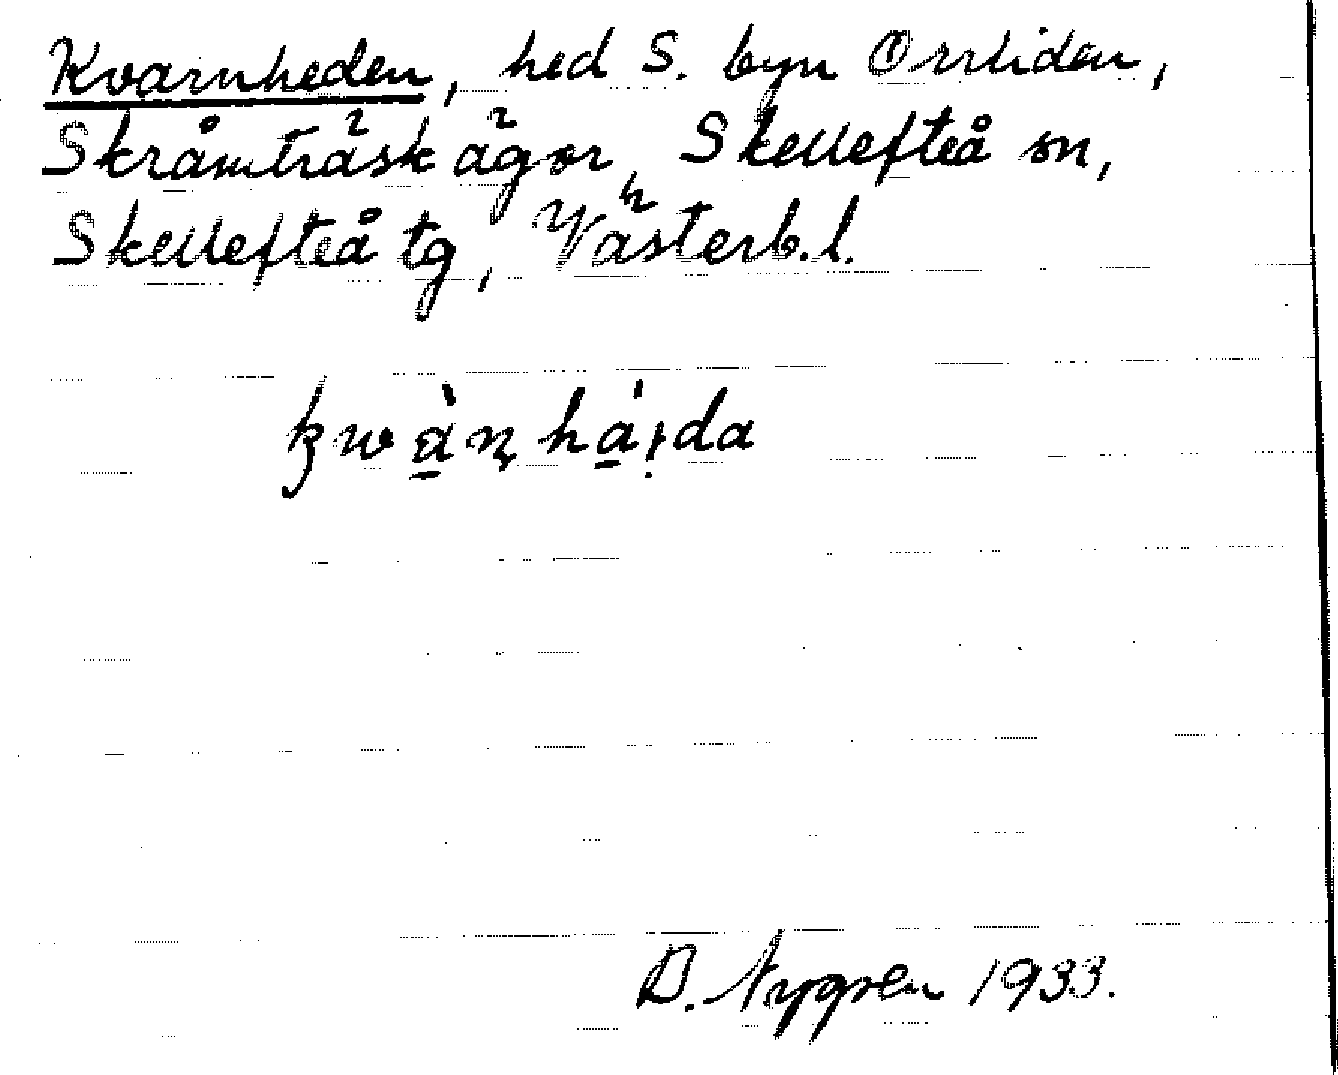 Kvarnheden, hed S. byn Orrliden,
Skråmträsk ägor, Skellefteå sn,
Skellefteå tg, Västerb. l.
kwàṇhá̱ı̣da
D. Nygren 1933.